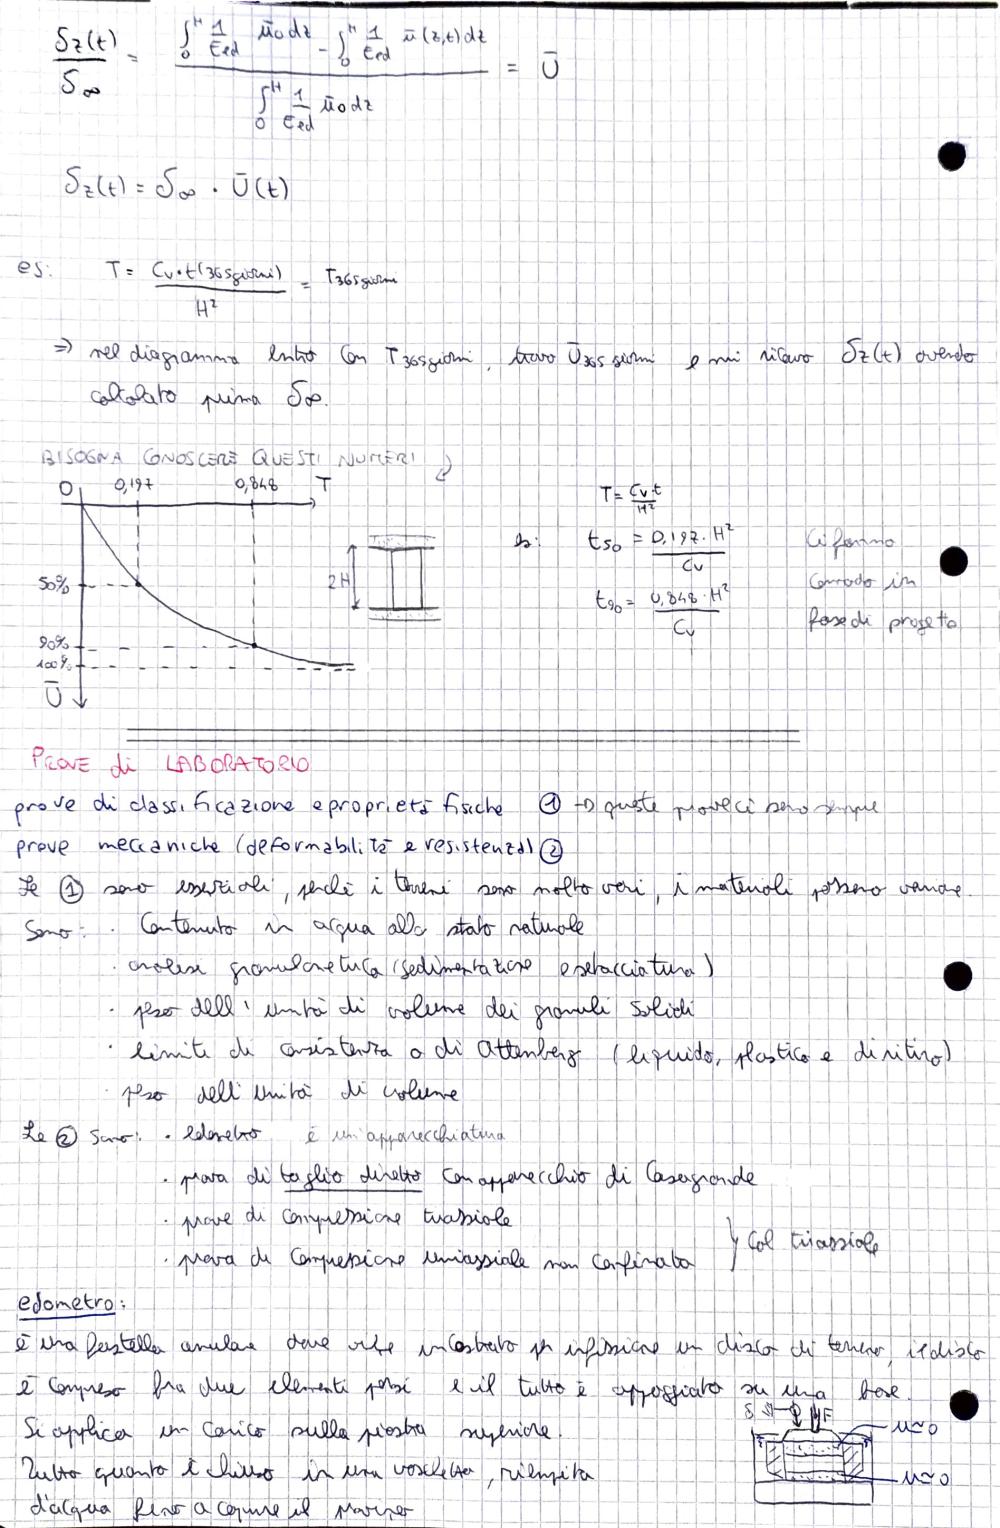 δz(t)/δ∞ = (∫₀ᴴ 1/Eed ū₀ dz - ∫₀ᴴ 1/Eed ū(z,t) dz) / (∫₀ᴴ 1/Eed ū₀ dz) = Ū
δz(t) = δ∞ · Ū(t)
es: T = Cv·t(365giorni) / H² = T365giorni
⇒ nel diagramma entro con T365giorni, trovo Ū365 giorni e mi ricavo δz(t) avendo
calcolato prima δ∞.
BISOGNA CONOSCERE QUESTI NUMERI
0 0,197 0,848 T
50%
90%
100%
Ū
2H
T = Cv·t / H²
t50 = 0,197·H² / Cv
t90 = 0,848·H² / Cv
Ci fanno
comodo in
fase di progetto
PROVE di LABORATORIO
prove di classificazione e proprietà fisiche ① → queste prove ci sono sempre
prove meccaniche (deformabilità e resistenza) ②
Le ① sono essenziali, perchè i terreni sono molto vari, i materiali possono variare.
Sono: · Contenuto in acqua allo stato naturale
· analisi granulometrica (sedimentazione e setacciatura)
· peso dell'unità di volume dei granuli solidi
· limiti di consistenza o di Attenberg (liquido, plastico e di ritiro)
· peso dell'unità di volume
Le ② sono: · edometro è un'apparecchiatura
· prova di taglio diretto con apparecchio di Casagrande
· prove di compressione triassiale
· prova di compressione uniassiale non confinata } col triassiale
edometro:
è una fustella anulare dove viene incastrato per infissione un disco di terreno, il disco
è compreso fra due elementi porosi e il tutto è appoggiato su una base.
Si applica un carico sulla piastra superiore.
Tutto quanto è chiuso in una vaschetta, riempita
d'acqua fino a coprire il provino
F
u≃0
u≃0